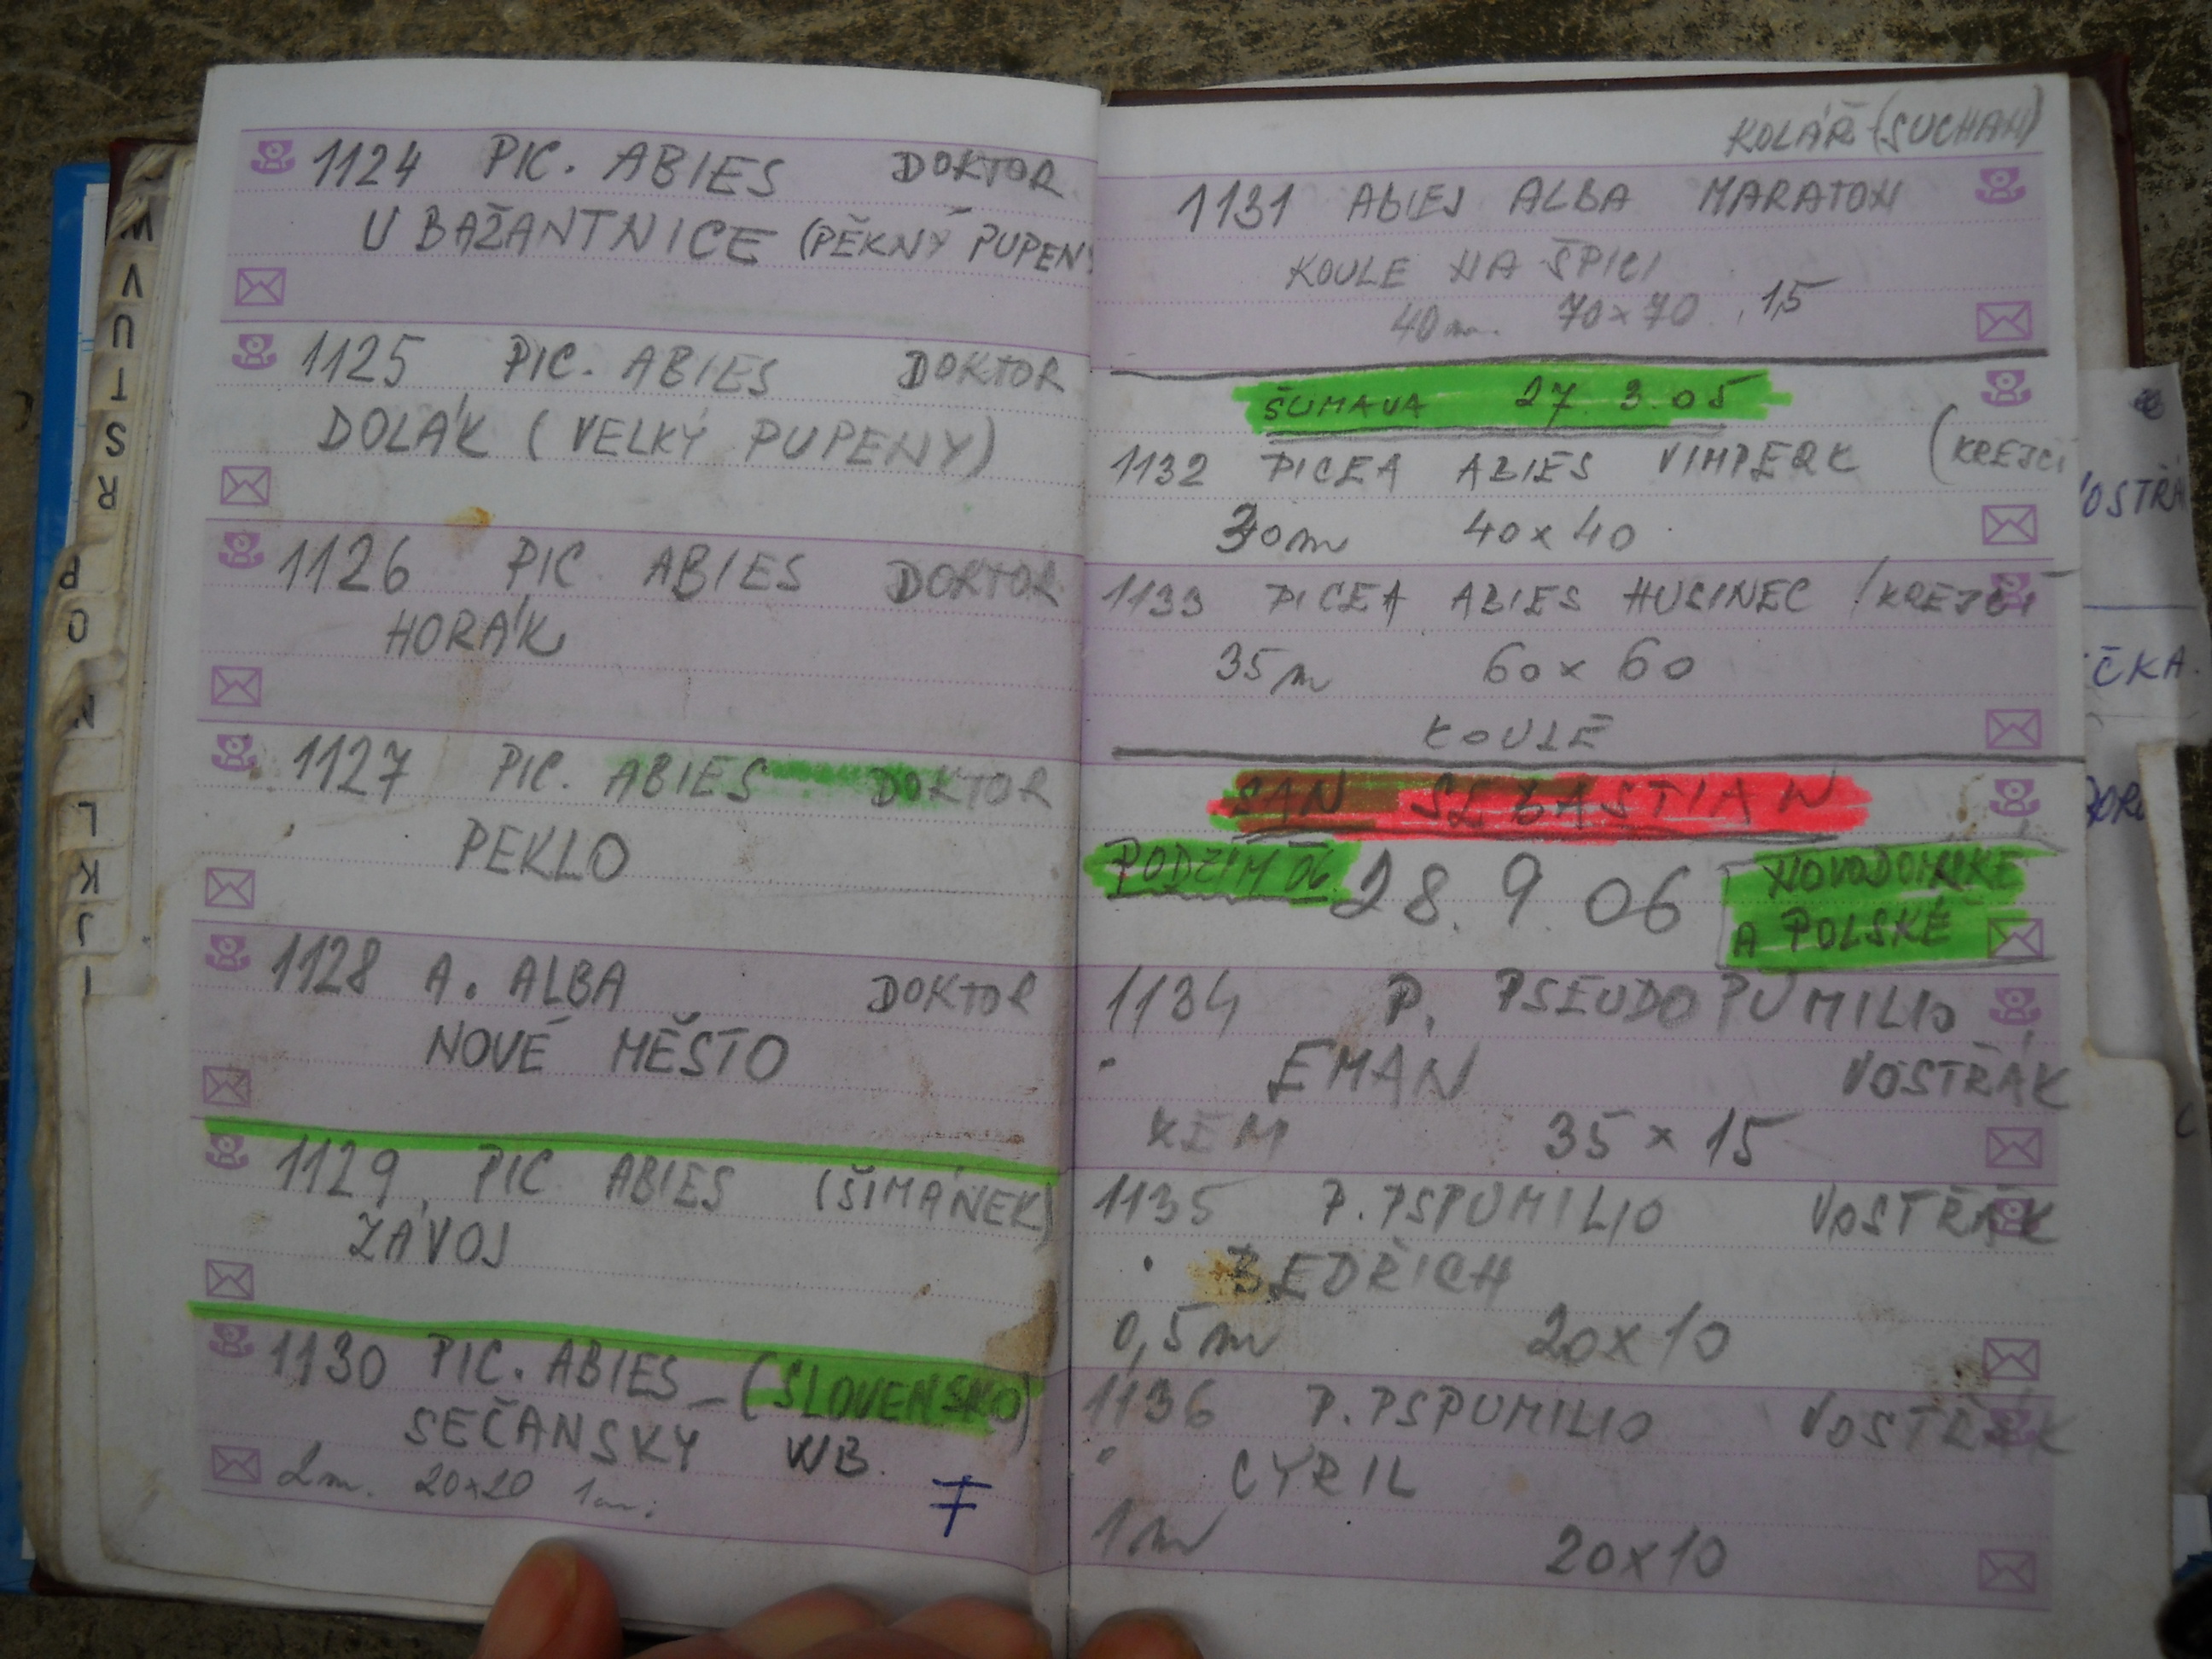 1124 PIC. ABIES DOKTOR
U BAŽANTNICE (PĚKNÝ PUPENY
1125 PIC. ABIES DOKTOR
DOLÁK (VELKÝ PUPENY)
1126 PIC ABIES DOKTOR
HORÁK
1127 PIC. ABIES DOKTOR
PEKLO
1128 A. ALBA DOKTOR
NOVÉ MĚSTO
1129 PIC ABIES (ŠIMÁNEK)
ZÁVOJ
1130 PIC. ABIES - (SLOVENSKO)
SEČANSKÝ WB.
2m. 20x20
KOLÁŘ (SUCHAN)
1131 ABIES ALBA MARATON
KOULE NA ŠPICI
40m. 70x70 15
ŠUMAVA 27. 3. 05
1132 PICEA ABIES VIMPERK (KREJČÍ
30m 40x40
1133 PICEA ABIES HUSINEC /KREJČÍ
35m 60x60
KOULE
SAN SEBASTIAN
PODZIM 06 28. 9. 06 NOVODOMSKÉ
A POLSKÉ
1134 P. PSEUDOPUMILIO
EMAN VOSTŘÁK
ZEM 35x15
1135 P. PSPUMILIO VOSTŘÁK
BEDŘICH
0,5m 20x10
1136 P. PSPUMILIO VOSTŘÁK
CYRIL
1m 20x10
W
V
U
T
S
R
P
O
N
L
K
J
I
ČKA.